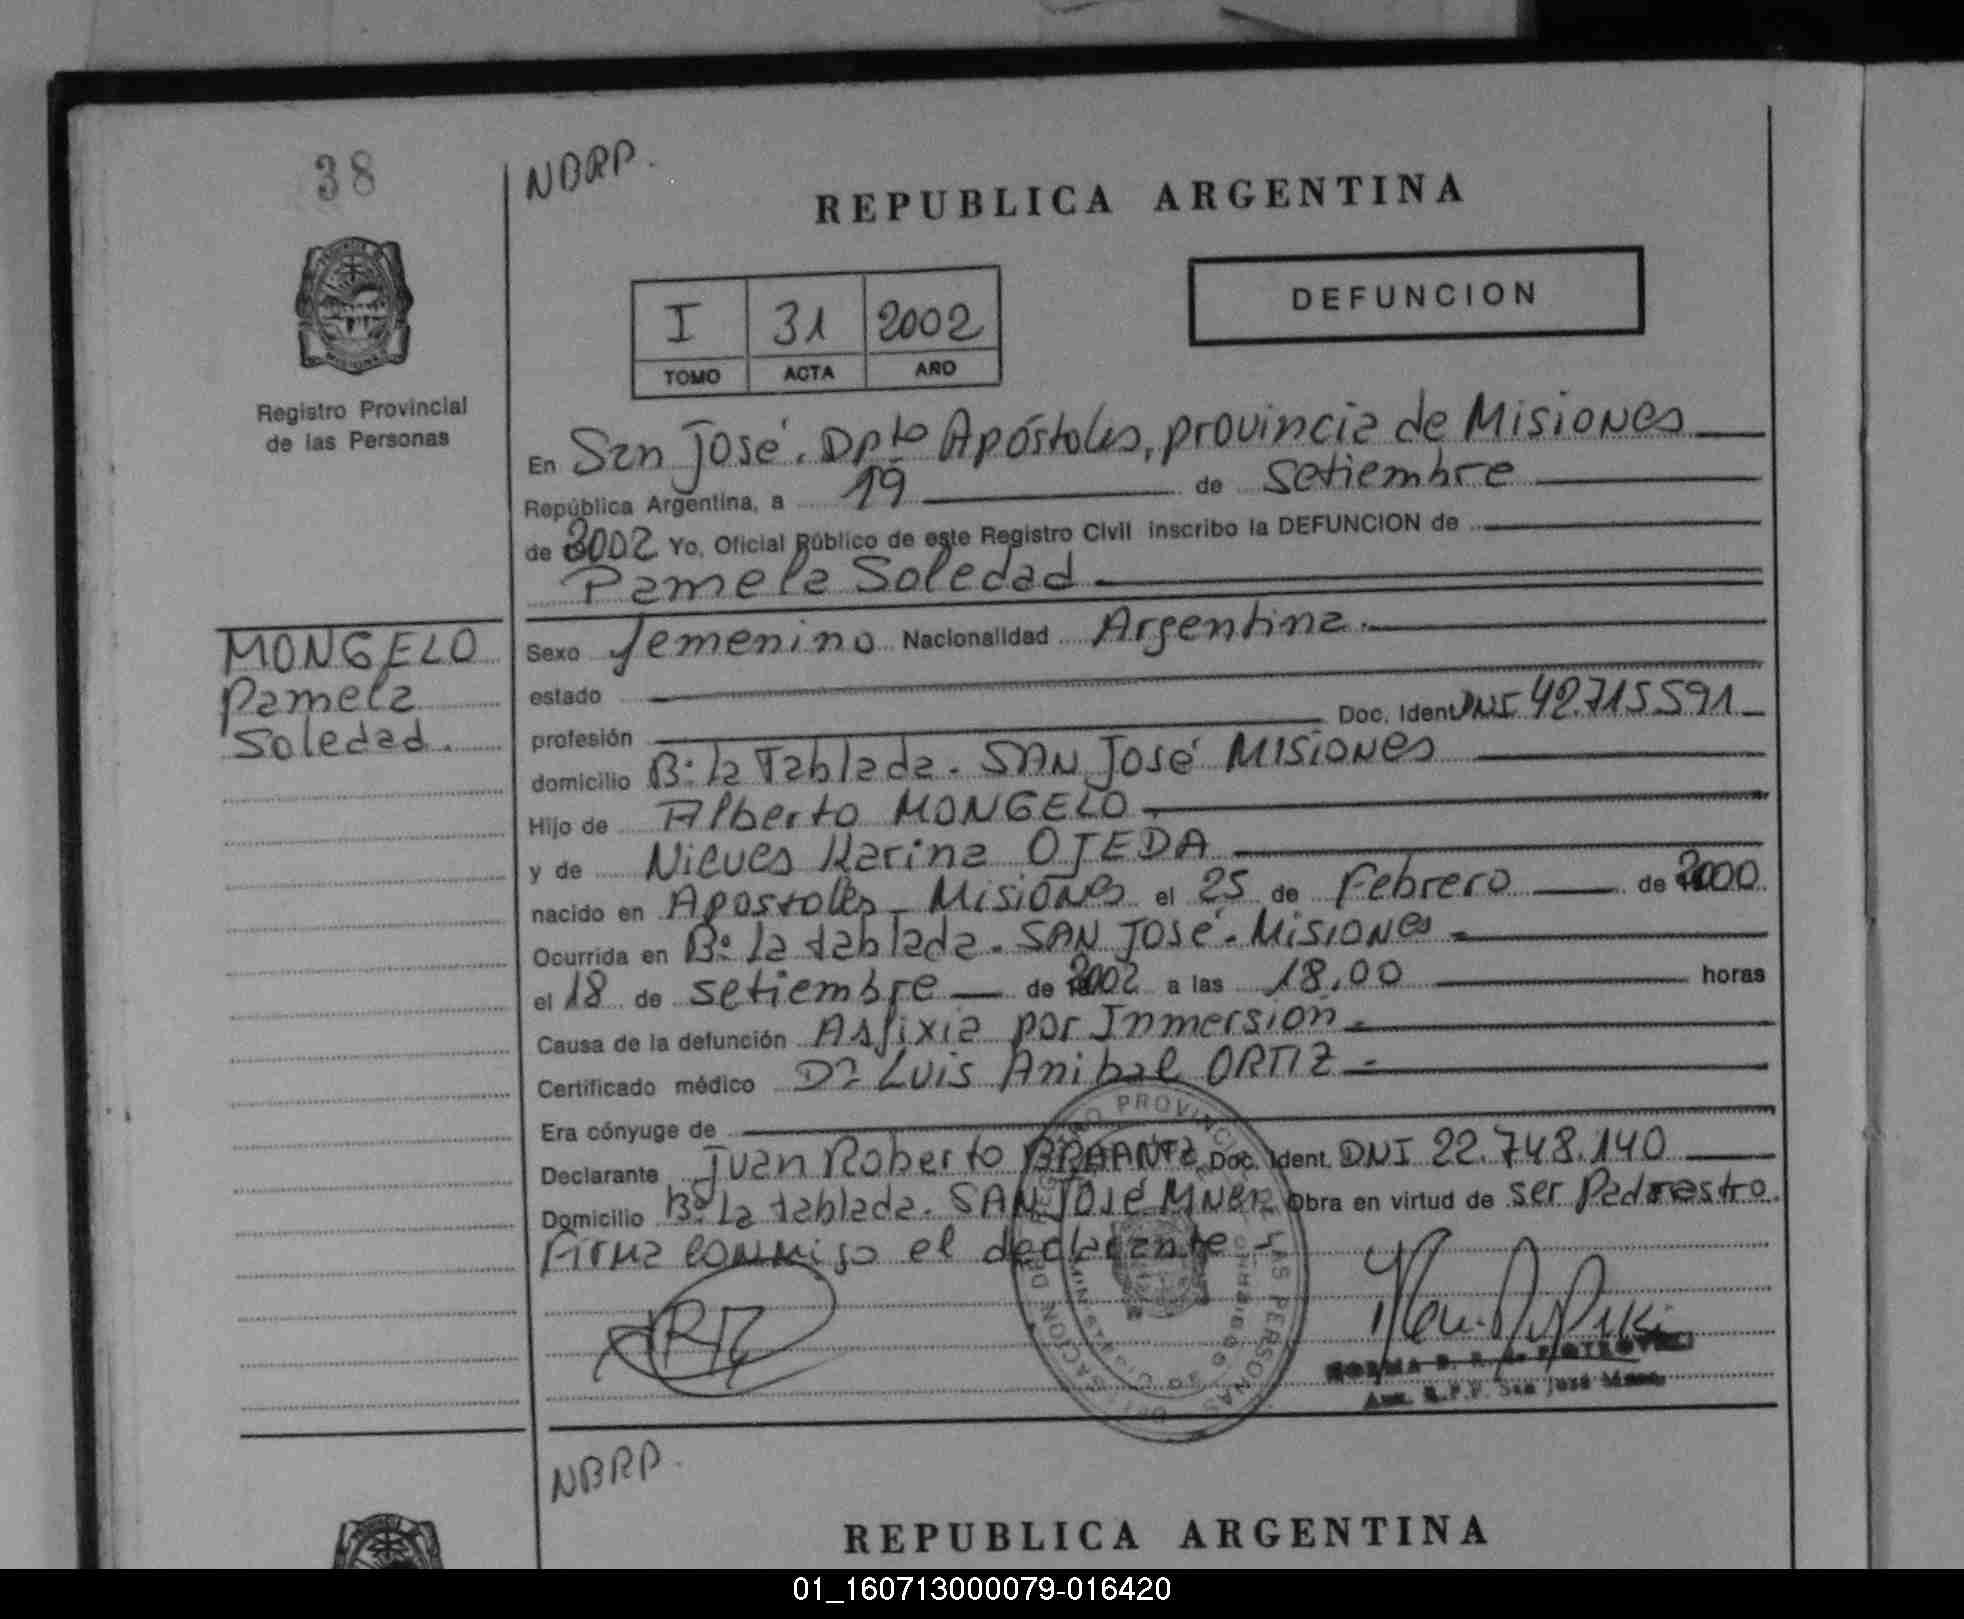 38
NBRP.
REPUBLICA ARGENTINA
I 31 2002
TOMO ACTA AÑO
DEFUNCION
Registro Provincial
de las Personas
En San José. Dpto Apóstoles, provincia de Misiones
República Argentina, a 19 de setiembre
de 2002 Yo, Oficial Público de este Registro Civil inscribo la DEFUNCION de
Pamela Soledad
MONGELO
Pamela
Soledad.
Sexo femenino Nacionalidad Argentina.
estado
profesión Doc. Ident DNI 42.715591
domicilio Bº la Tablada. SAN José Misiones
Hijo de Alberto MONGELO
y de Nieves Karina OJEDA
nacido en Apostoles Misiones el 25 de Febrero de 2000
Ocurrida en Bº la tablada. SAN José. Misiones
el 18 de setiembre de 2002 a las 18,00 horas
Causa de la defunción Asfixia por Inmersión
Certificado médico Dr Luis Anibal ORTIZ
Era cónyuge de
Declarante Juan Roberto Doc. Ident. DNI 22.748.140
Domicilio Bº La tablada. SAN José Obra en virtud de ser Padrastro.
Firma conmigo el declarante
NBRP.
REPUBLICA ARGENTINA
01_160713000079-016420